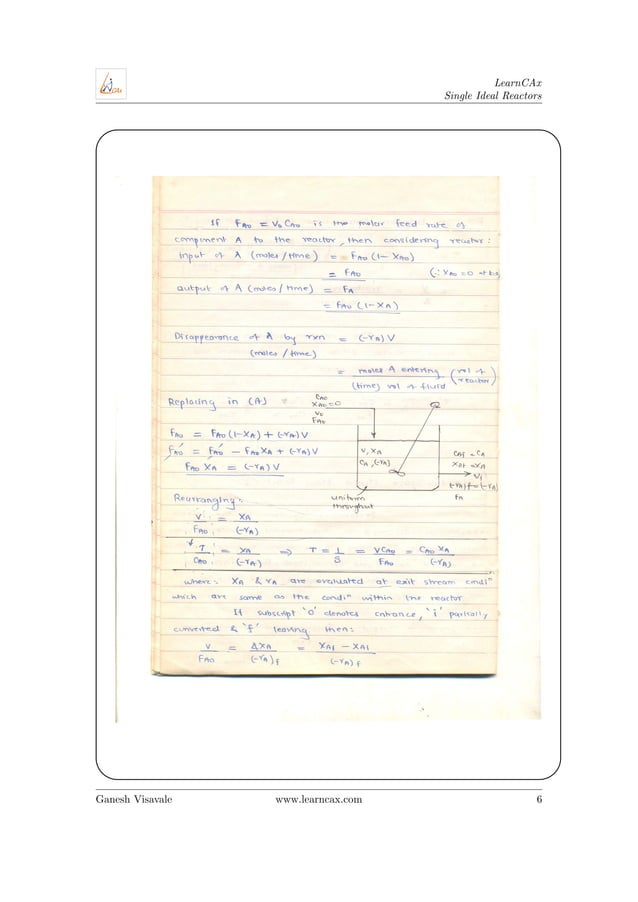 LearnCAx
Single Ideal Reactors
If F_A0 = V_0 C_A0 is the molar feed rate of
component A to the reactor, then considering reactor:
input of A (moles/time) = F_A0 (1 - X_A0)
= F_A0 (∵ X_A0 = 0 at
output of A (moles/time) = F_A
= F_A0 (1 - X_A)
Disappearance of A by rxn = (-r_A) V
(moles/time)
= moles A entering / (time) vol of fluid (vol of reactor)
Replacing in (A) :
C_A0
X_A0 = 0
V_0
F_A0
F_A0 = F_A0 (1 - X_A) + (-r_A) V
F_A0 = F_A0 - F_A0 X_A + (-r_A) V
F_A0 X_A = (-r_A) V
V, X_A
C_A, (-r_A)
C_Af = C_A
X_Af = X_A
(-r_A)f = (-r_A)
F_A
uniform
throughout
Rearranging :
V / F_A0 = X_A / (-r_A)
τ / C_A0 = X_A / (-r_A) ⇒ τ = 1/S = V C_A0 / F_A0 = C_A0 X_A / (-r_A)
where : X_A & r_A are evaluated at exit stream condiⁿ
which are same as the condiⁿ within the reactor
If subscript 'o' denotes entrance, 'i' partially
converted & 'f' leaving then :
V / F_A0 = ΔX_A / (-r_A)f = X_Af - X_Ai / (-r_A)f
Ganesh Visavale www.learncax.com 6